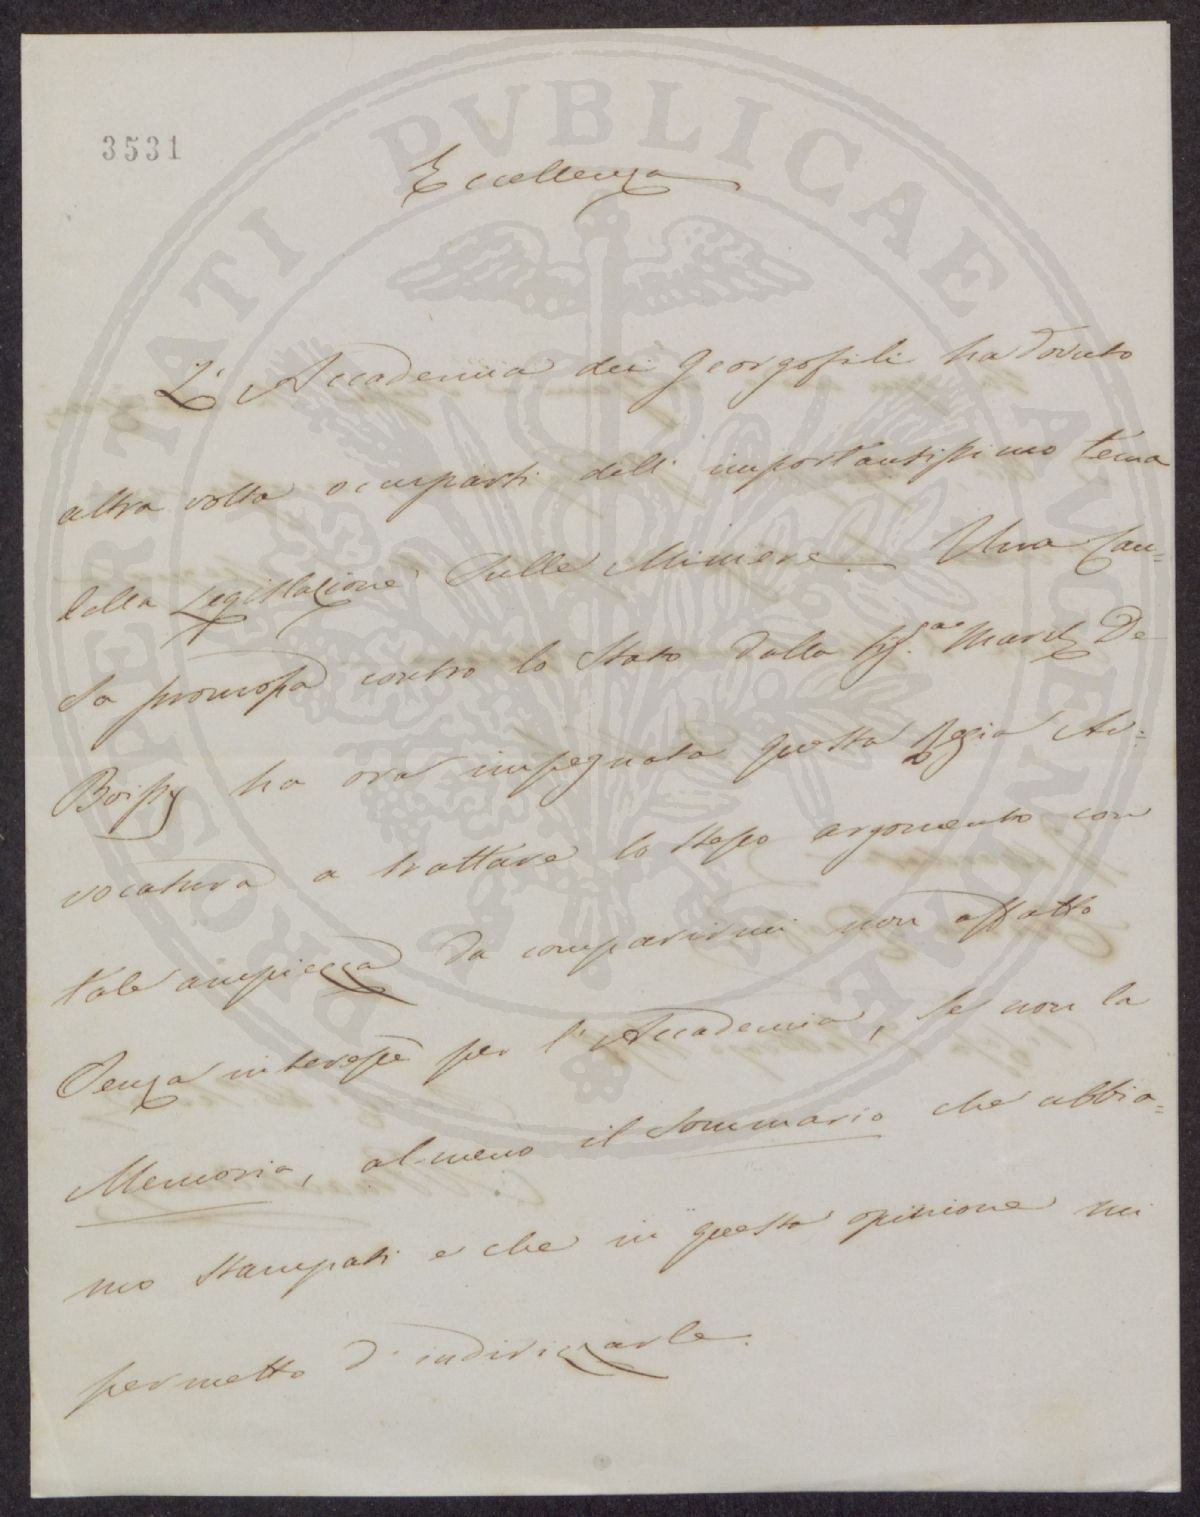 3531
PROSPERITATI PVBLICAE AVGENDAE
Eccellenza
L'Accademia dei Georgofili ha dovuto
altra volta occuparsi dell'importantissimo tema
della Legislazione Sulle Miniere. Una Cau-
sa promossa contro lo Stato dalla Sig.ra March. De
Boissy ha ora impegnata questa Regia Av=
vocatura a trattare lo stesso argomento con
tale ampiezza da comparirmi non affatto
Senza interesse per l'Accademia, Se non la
Memoria, al meno il Sommario che abbia=
mo stampati e che in questa opinione mi
permetto d'indirizzarle.